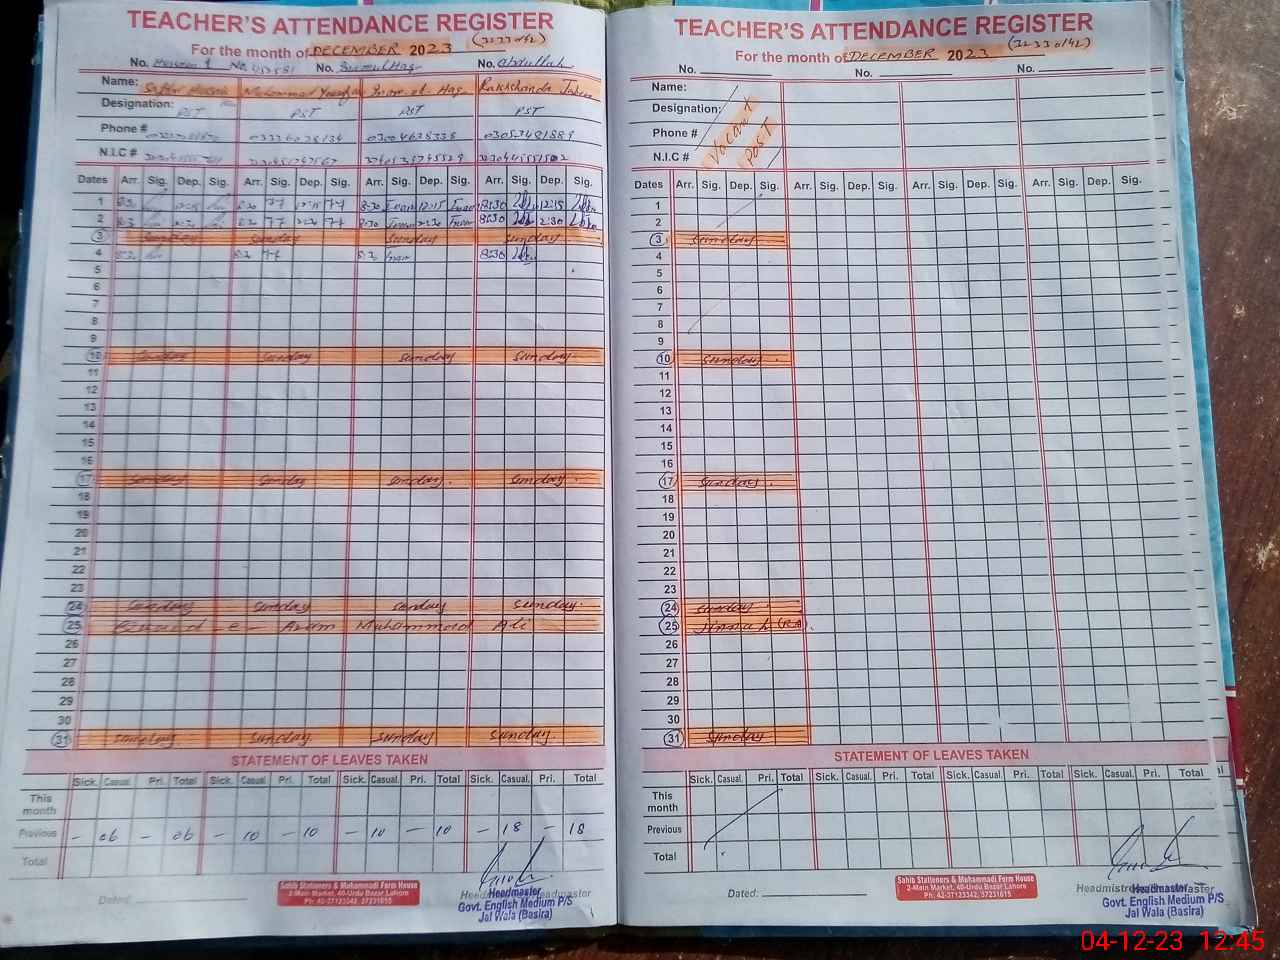 TEACHER'S ATTENDANCE REGISTER
(32330142)
For the month of DECEMBER 2023
No. No. No. Abdullah
Name: Muhammad Rakhshanda
Designation: PST PST PST PST
Phone # 03004638338 03053481889
N.I.C #
Dates Arr. Sig. Dep. Sig. Arr. Sig. Dep. Sig. Arr. Sig. Dep. Sig. Arr. Sig. Dep. Sig.
1 8:30 12:15 8:30 12:15
2 8:30 2:30 8:30 2:30
3 Sunday Sunday Sunday Sunday
4 8:30
5
6
7
8
9
10 Sunday Sunday Sunday Sunday
11
12
13
14
15
16
17 Sunday Sunday Sunday Sunday
18
19
20
21
22
23
24 Sunday Sunday Sunday Sunday
25 e - Azam Muhammad Ali
26
27
28
29
30
31 Sunday Sunday Sunday Sunday
STATEMENT OF LEAVES TAKEN
Sick. Casual. Pri. Total Sick. Casual. Pri. Total Sick. Casual. Pri. Total Sick. Casual. Pri. Total
This month
Previous - 06 - 06 - 10 - 10 - 10 - 10 - 18 - 18
Total
Dated:
Sahib Stationers & Muhammadi Form House
2-Main Market, 40-Urdu Bazar Lahore
Ph: 42-37123342, 37231615
Headmaster
Govt. English Medium P/S
Jal Wala (Basira)
TEACHER'S ATTENDANCE REGISTER
(32330142)
For the month of DECEMBER 2023
No. No. No.
Name:
Designation:
Phone #
N.I.C #
Vacant
Post
Dates Arr. Sig. Dep. Sig. Arr. Sig. Dep. Sig. Arr. Sig. Dep. Sig. Arr. Sig. Dep. Sig.
1
2
3 Sunday
4
5
6
7
8
9
10 Sunday
11
12
13
14
15
16
17 Sunday
18
19
20
21
22
23
24 Sunday
25 Jinnah (RA)
26
27
28
29
30
31 Sunday
STATEMENT OF LEAVES TAKEN
Sick. Casual. Pri. Total Sick. Casual. Pri. Total Sick. Casual. Pri. Total Sick. Casual. Pri. Total
This month
Previous
Total
Dated:
Sahib Stationers & Muhammadi Form House
2-Main Market, 40-Urdu Bazar Lahore
Ph: 42-37123342, 37231615
Headmaster
Govt. English Medium P/S
Jal Wala (Basira)
04-12-23 12:45